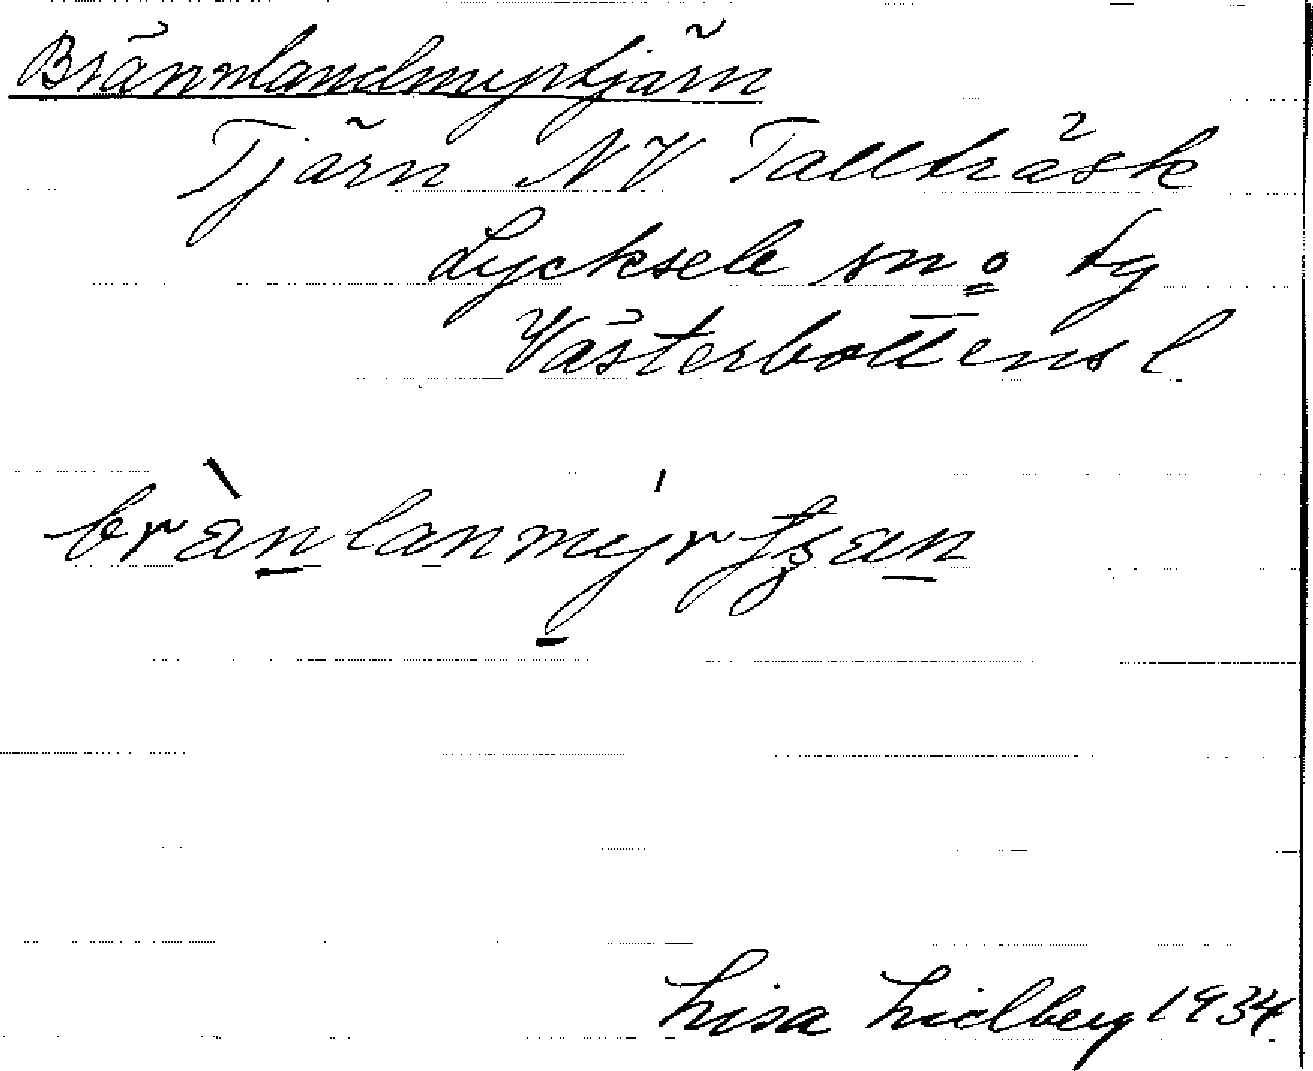 Brännlandmyrtjärn
Tjärn NV Tallträsk
Lycksele sn o lg
Västerbottens l.
Lisa Lidberg 1934.